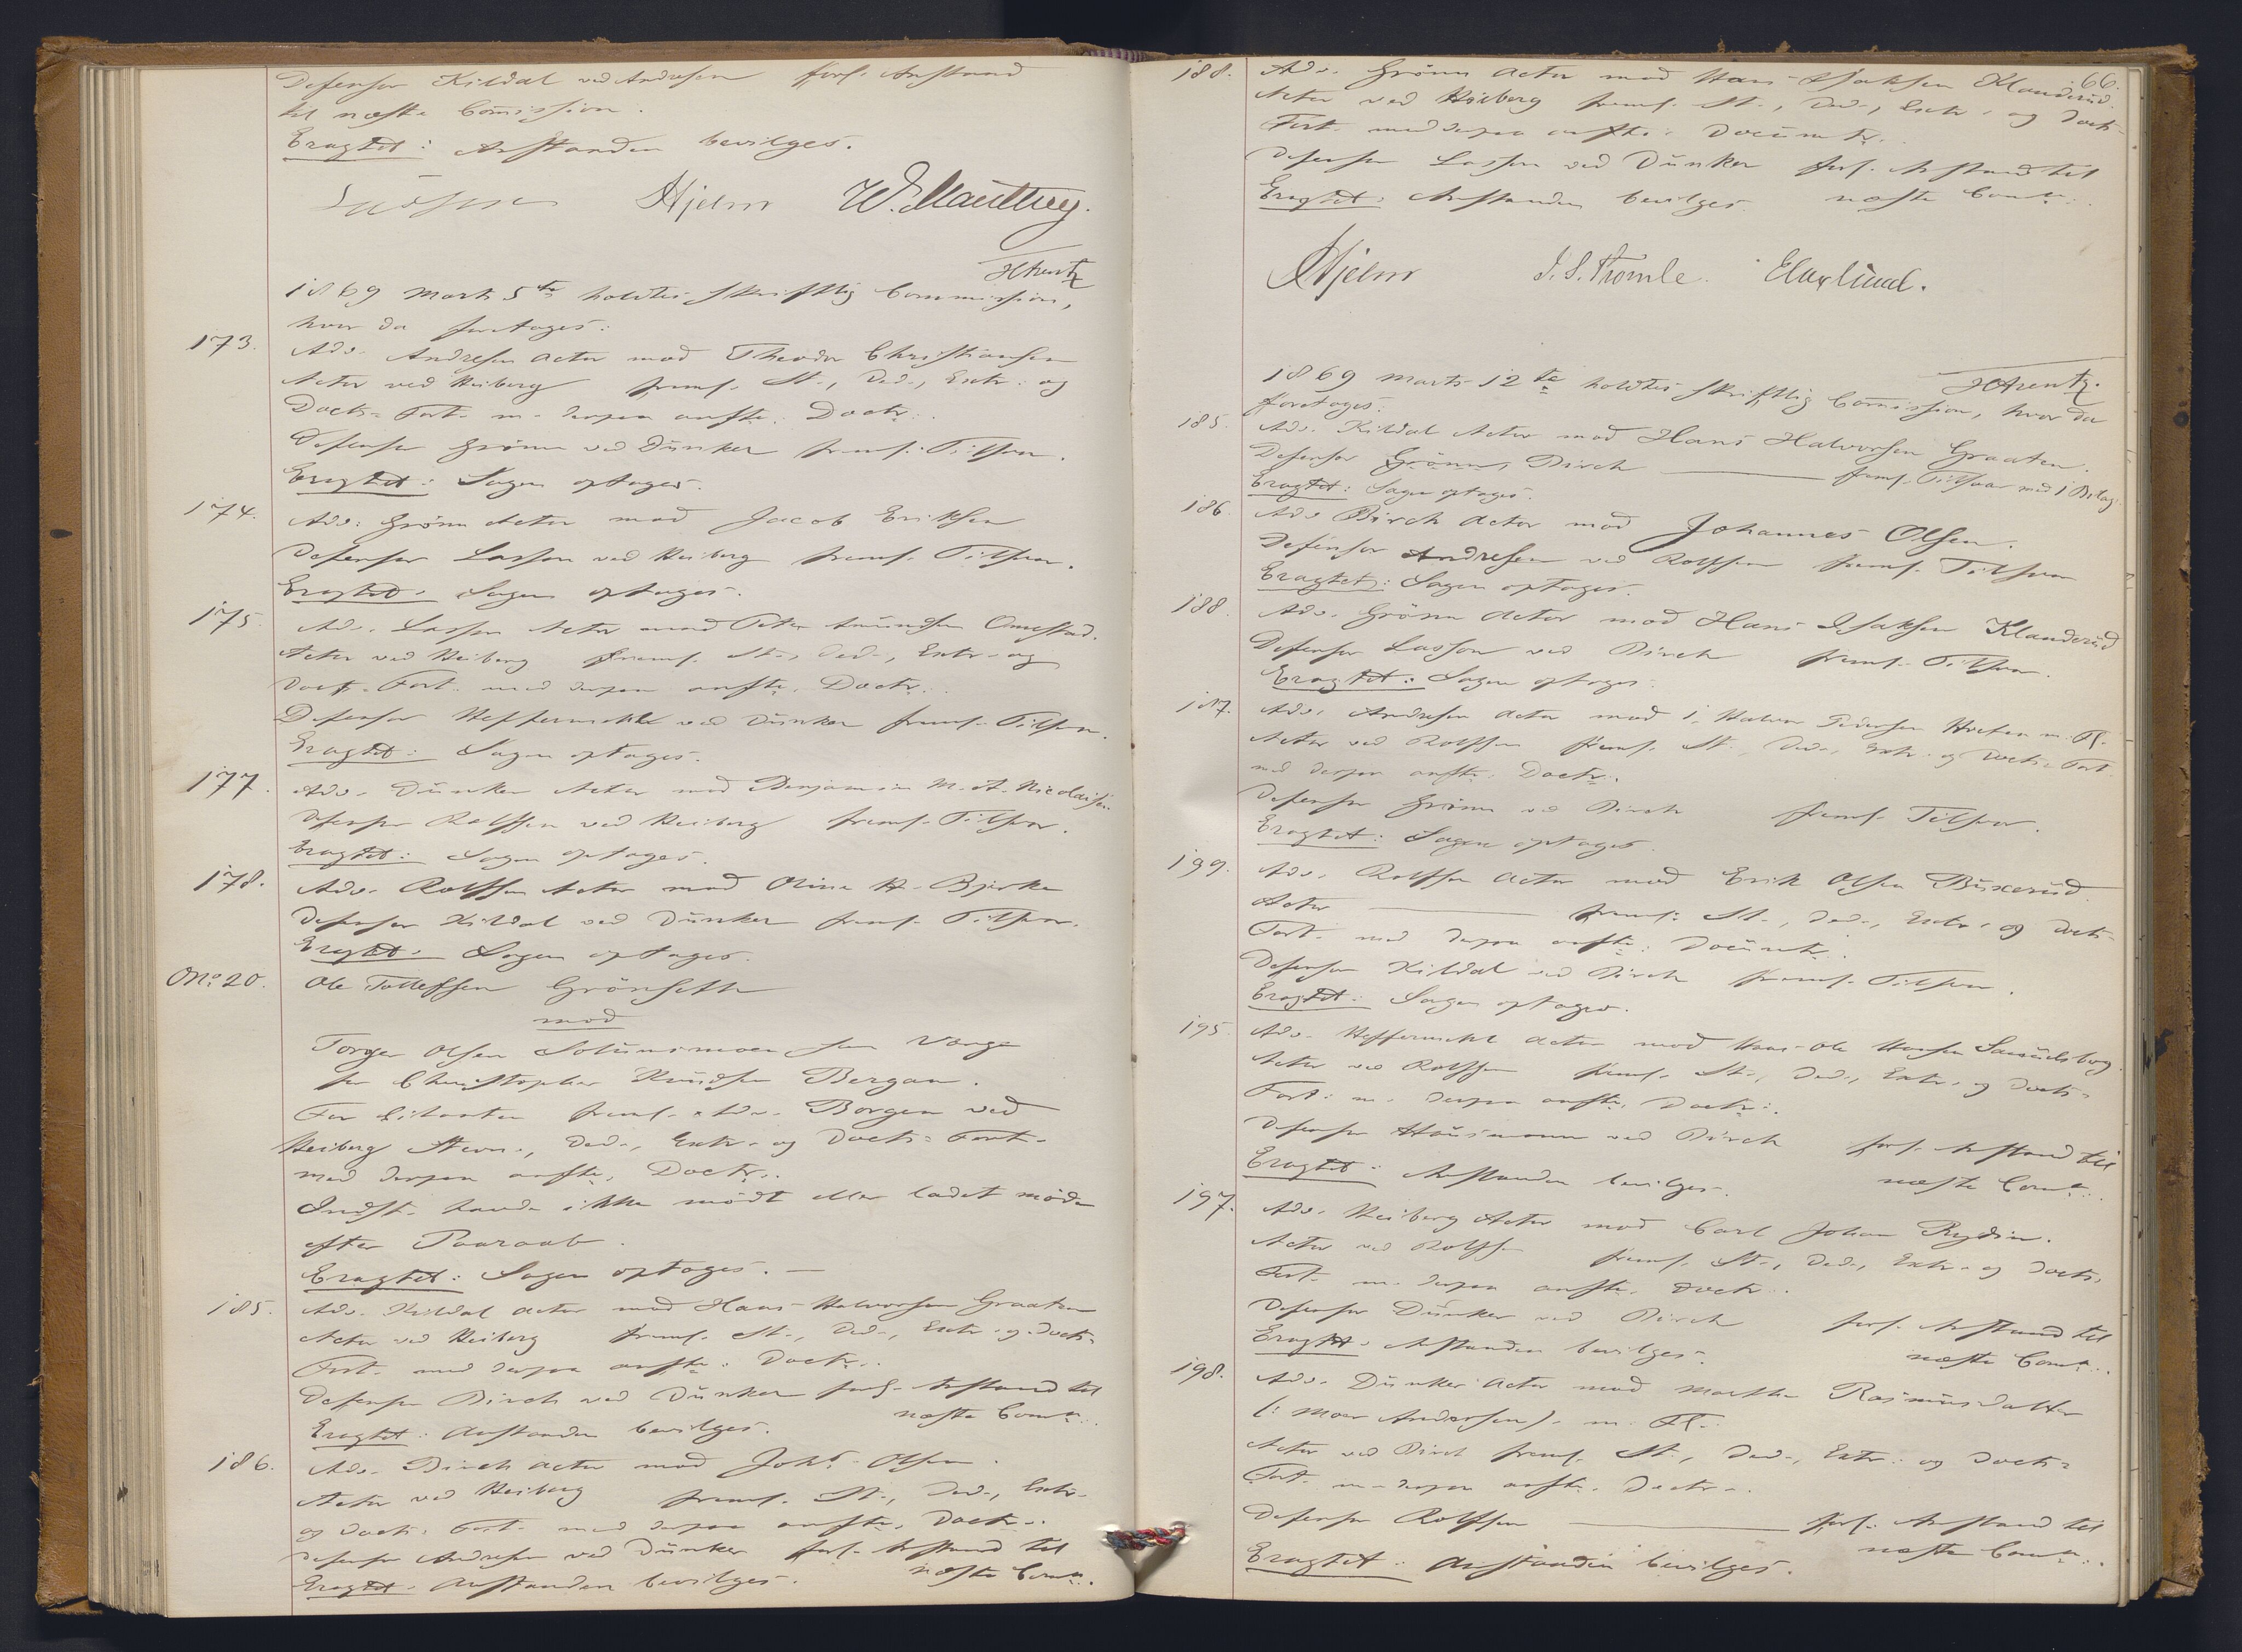 Defensor Kildal ved Andresen forl. Anstand
til næste Commission.
Eragtet: Anstanden bevilges.
Hjelm
H Arentz
1869 Marts 5te holdtes skriftlig Commission,
hvor da foretages:
173. Adv. Andresen Actor mod Theodor Christiansen
Actor ved Heiberg freml. St., Ded., Extr. og
Docts-Fort. m. derpaa anfte. Doctr.
Defensor Grönn ved Dunker freml. Tilsvar.
Eragtet: Sagen optages.
174. Adv. Grönn Actor mod Jacob Eriksen
Defensor Lasson ved Heiberg freml. Tilsvar.
Eragtet: Sagen optages.
175. Adv. Lasson Actor mod Peter Amundsen
Actor ved Heiberg freml. St., Ded., Extr. og
Docts. Fort. med derpaa anfte. Doctr.
Defensor Heffermehl ved Dunker freml. Tilsvar.
Eragtet: Sagen optages.
177. Adv. Dunker Actor mod Benjamin M. A. Nicolaisen
Defensor Rolfsen ved Heiberg freml. Tilsvar.
Eragtet: Sagen optages.
178. Adv. Rolfsen Actor mod Oline H. Bjerke
Defensor Kildal ved Dunker freml. Tilsvar.
Eragtet: Sagen optages.
No. 20. Ole Tollefsen Grönseth
mod
Torger Olsen Solumsmoen som Værge
for Christopher Knudsen Bergan.
For Citanten freml. Adv. Borgen ved
Heiberg Stevn., Ded., Extr. og Docts-Fort.
med derpaa anfte. Doctr.
Indst. havde ikke mödt eller ladet möde
efter Paaraab.
Eragtet: Sagen optages. —
185. Adv. Kildal Actor mod Hans Halvorsen Graaten
Actor ved Heiberg freml. St., Ded., Extr. og Docts-
Fort. med derpaa anfte. Doctr.
Defensor Birch ved Dunker forl. Anstand til
næste Comn.
Eragtet: Anstanden bevilges.
186. Adv. Birch Actor mod Johs. Olsen.
Actor ved Heiberg freml. St., Ded., Extr.
og Docts. Fort. med derpaa anfte. Doctr.
Defensor Andresen ved Dunker forl. Anstand til
næste Comn.
Eragtet: Anstanden bevilges.
66.
188. Adv. Grönn Actor mod Hans Isaksen Klanderud.
Actor ved Heiberg freml. St., Ded., Extr. og Docts-
Fort. med derpaa anfte. Documtr.
Defensor Lasson ved Dunker forl. Anstand til
næste Comn.
Eragtet: Anstanden bevilges.
Hjelm J. S. Thomle.
H Arentz.
1869 Marts 12te holdtes skriftlig Commission, hvor da
foretages:
185. Adv. Kildal Actor mod Hans Halvorsen Graaten.
Defensor Grönn, Birch — freml. Tilsvar med 1 Bilag.
Eragtet: Sagen optages.
186. Adv Birch Actor mod Johannes Olsen.
Defensor Andresen ved Rolfsen freml. Tilsvar
Eragtet: Sagen optages.
188. Adv. Grönn Actor mod Hans Isaksen Klanderud
Defensor Lasson ved Birch freml. Tilsvar.
Eragtet: Sagen optages.
Adv. Andresen Actor mod 1, Halvor Pedersen m. Fl.
Actor ved Rolfsen freml. St., Ded., Extr. og Docts. Fort
med derpaa anfte. Doctr.
Defensor Grönn ved Birch freml. Tilsvar.
Eragtet: Sagen optages.
199. Adv. Rolfsen Actor mod Erik Olsen Buxerud.
Actor — freml. St., Ded., Extr. og Docts-
Fort. med derpaa anfte. Documtr.
Defensor Kildal ved Birch freml. Tilsvar.
Eragtet: Sagen optages.
195. Adv. Heffermehl Actor mod Hans Ole Hansen Samuelsberg.
Actor ved Rolfsen freml. St., Ded., Extr. og Docts-
Fort. m. derpaa anfte. Doctr.
Defensor Hausmann ved Birch forl. Anstand til
næste Comn.
Eragtet: Anstanden bevilges.
197. Adv. Heiberg Actor mod Carl Johan Rydin.
Actor ved Rolfsen freml. St., Ded., Extr. og Docts.
Fort. m. derpaa anfte. Doctr.
Defensor Dunker ved Birch forl. Anstand til
næste Comn.
Eragtet: Anstanden bevilges.
198. Adv. Dunker Actor mod Marthe Rasmusdatter
(: Moer Andersen). m. Fl.
Actor ved Birch freml. St., Ded., Extr. og Docts-
Fort. m. derpaa anfte. Doctr.
Defensor Rolfsen — forl. Anstand til
næste Comn.
Eragtet: Anstanden bevilges.